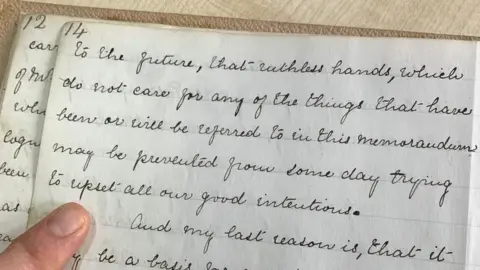 12
14
to the future, that ruthless hands, which
do not care for any of the things that have
been or will be referred to in this memorandum
may be prevented from some day trying
to upset all our good intentions.
And my last reason is, that it
be a basis
car
of
been
as